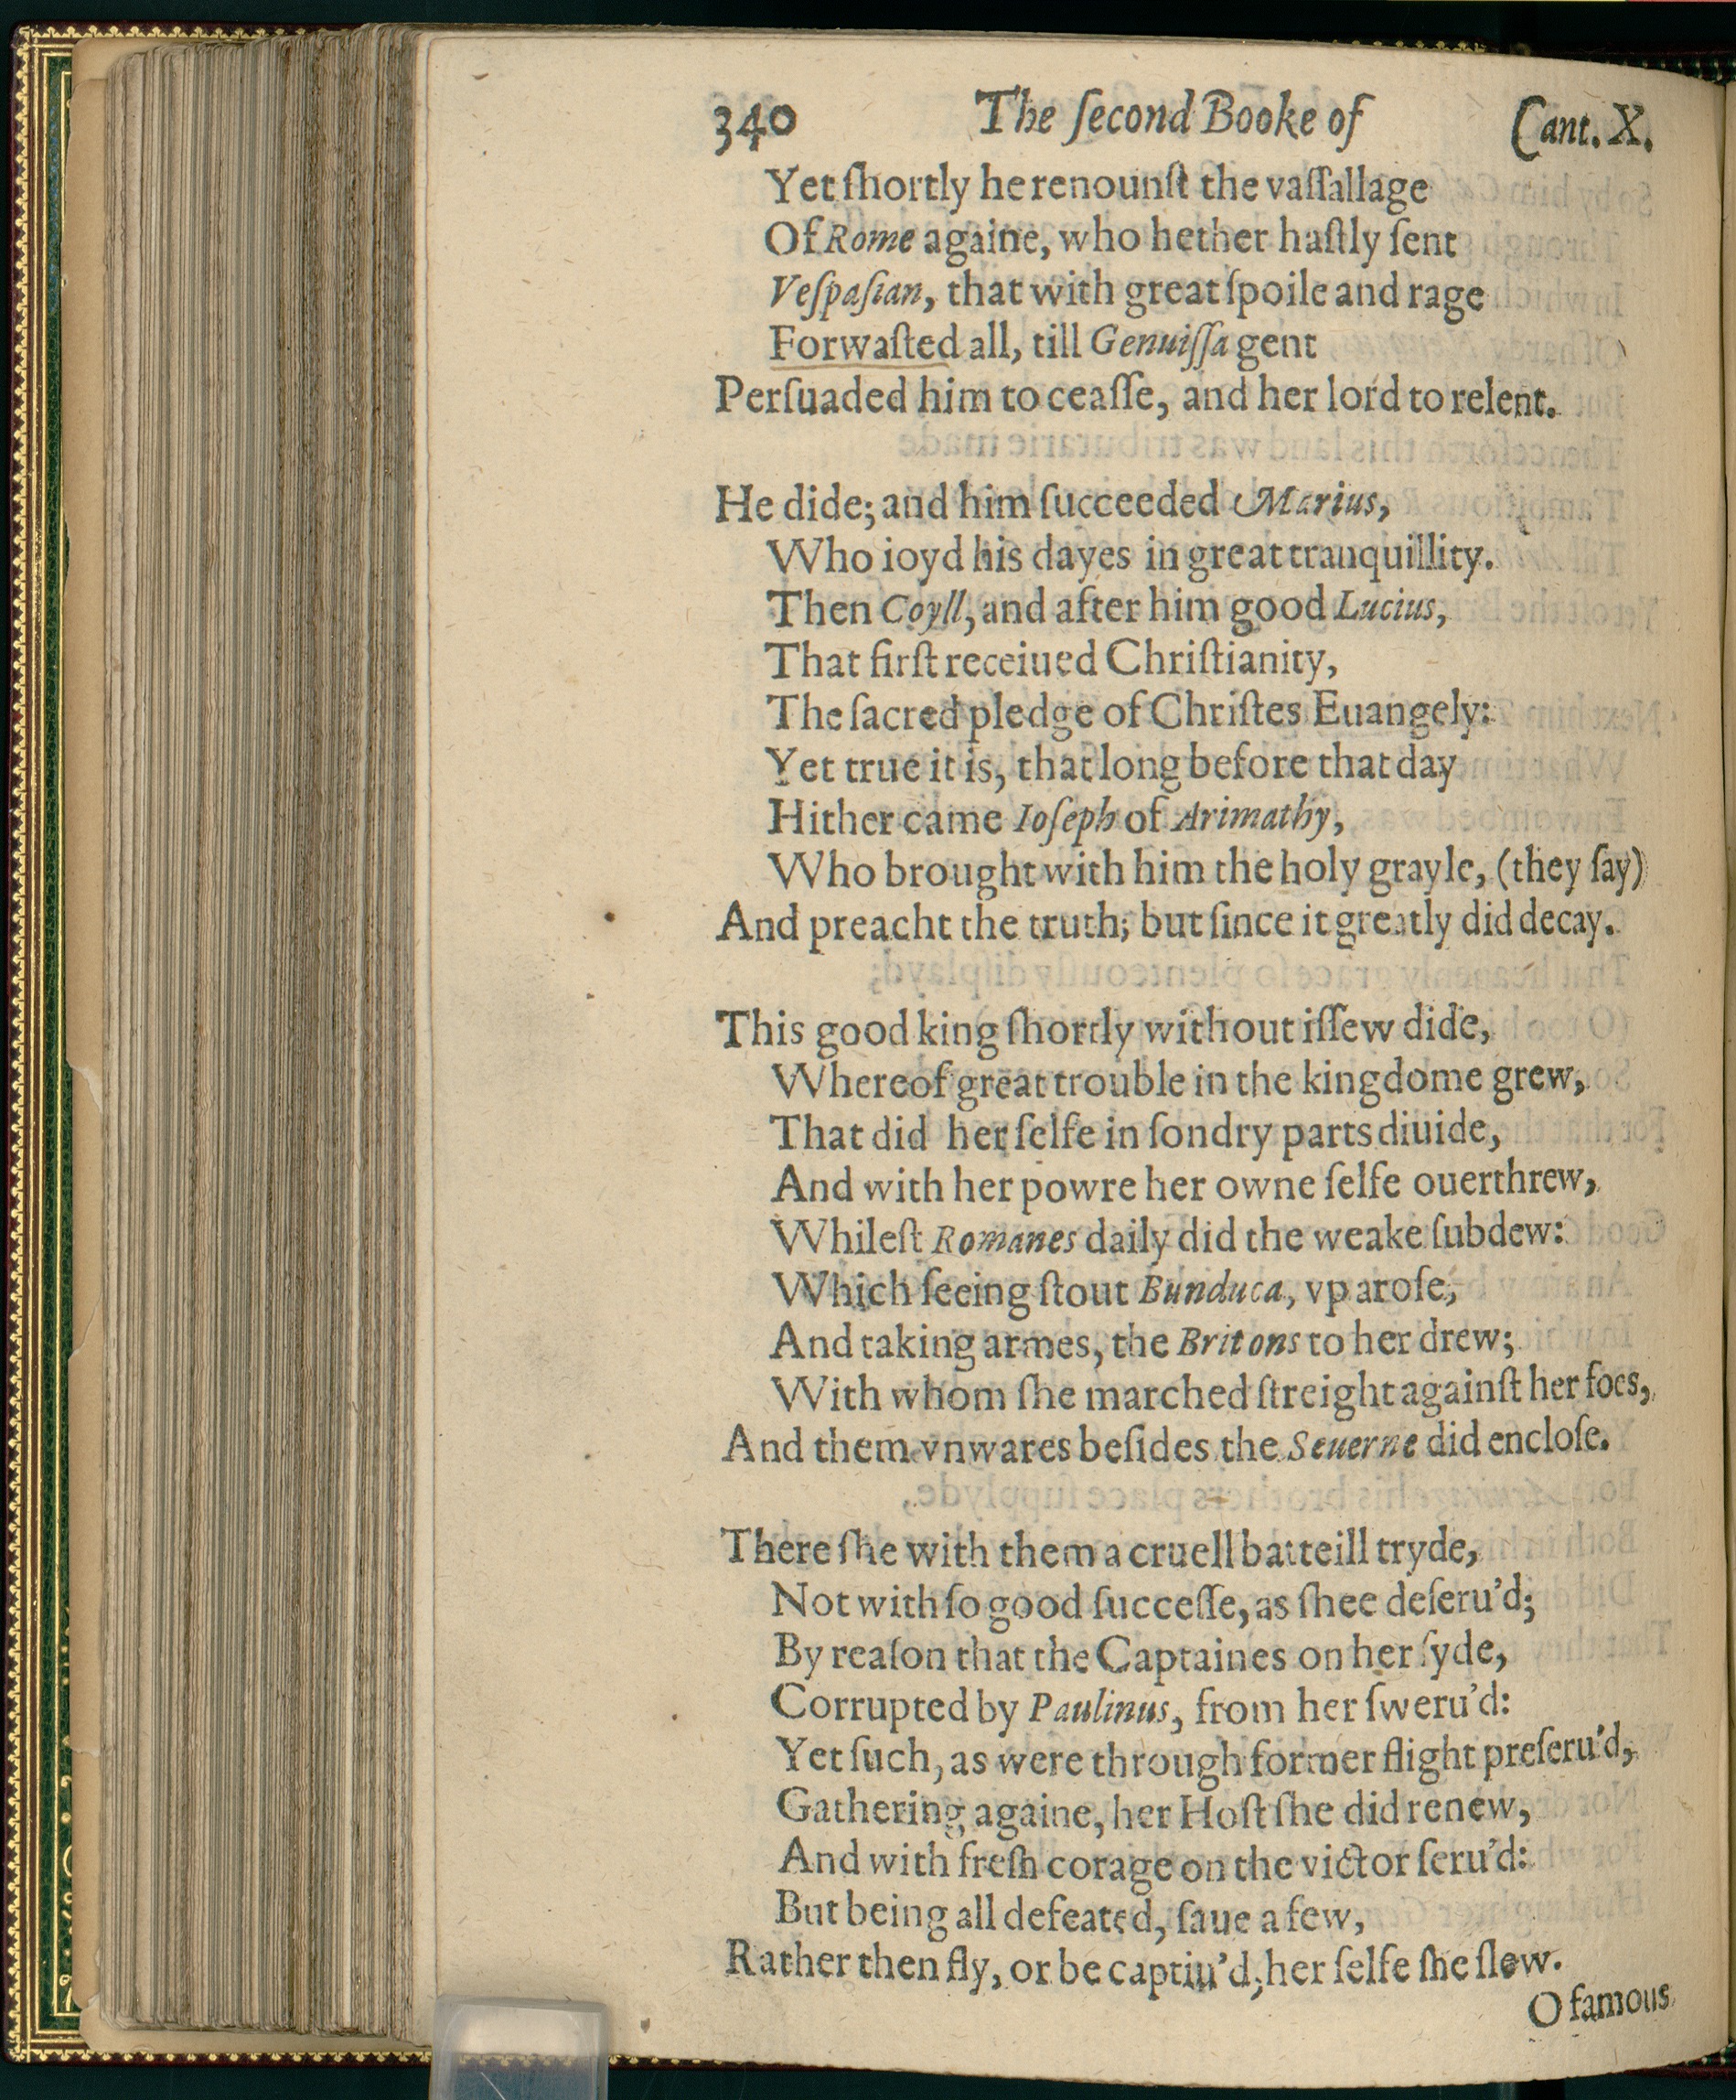 340 The ſecond Booke of Cant. X.
Yet ſhortly he renounſt the vaſſallage
Of Rome againe, who hether haſtly ſent
Veſpaſian, that with great ſpoile and rage
Forwaſted all, till Genuiſſa gent
Perſuaded him to ceaſſe, and her lord to relent.
He dide; and him ſucceeded Marius,
Who ioyd his dayes in great tranquillity.
Then Coyll, and after him good Lucius,
That firſt receiued Chriſtianity,
The ſacred pledge of Chriſtes Euangely:
Yet true it is, that long before that day
Hither came Ioſeph of Arimathy,
Who brought with him the holy grayle, (they ſay)
And preacht the truth; but ſince it greatly did decay.
This good king ſhortly without iſſew dide,
Whereof great trouble in the kingdome grew,
That did her ſelfe in ſondry parts diuide,
And with her powre her owne ſelfe ouerthrew,
Whileſt Romanes daily did the weake ſubdew:
Which ſeeing ſtout Bunduca, vp aroſe,
And taking armes, the Britons to her drew;
With whom ſhe marched ſtreight againſt her foes,
And them vnwares beſides the Seuerne did encloſe.
There ſhe with them a cruell batteill tryde,
Not with ſo good ſucceſſe, as ſhee deſeru'd;
By reaſon that the Captaines on her ſyde,
Corrupted by Paulinus, from her ſweru'd:
Yet ſuch, as were through former flight preſeru'd,
Gathering againe, her Hoſt ſhe did renew,
And with freſh corage on the victor ſeru'd:
But being all defeated, ſaue a few,
Rather then fly, or be captiu'd, her ſelfe ſhe ſlew.
O famous